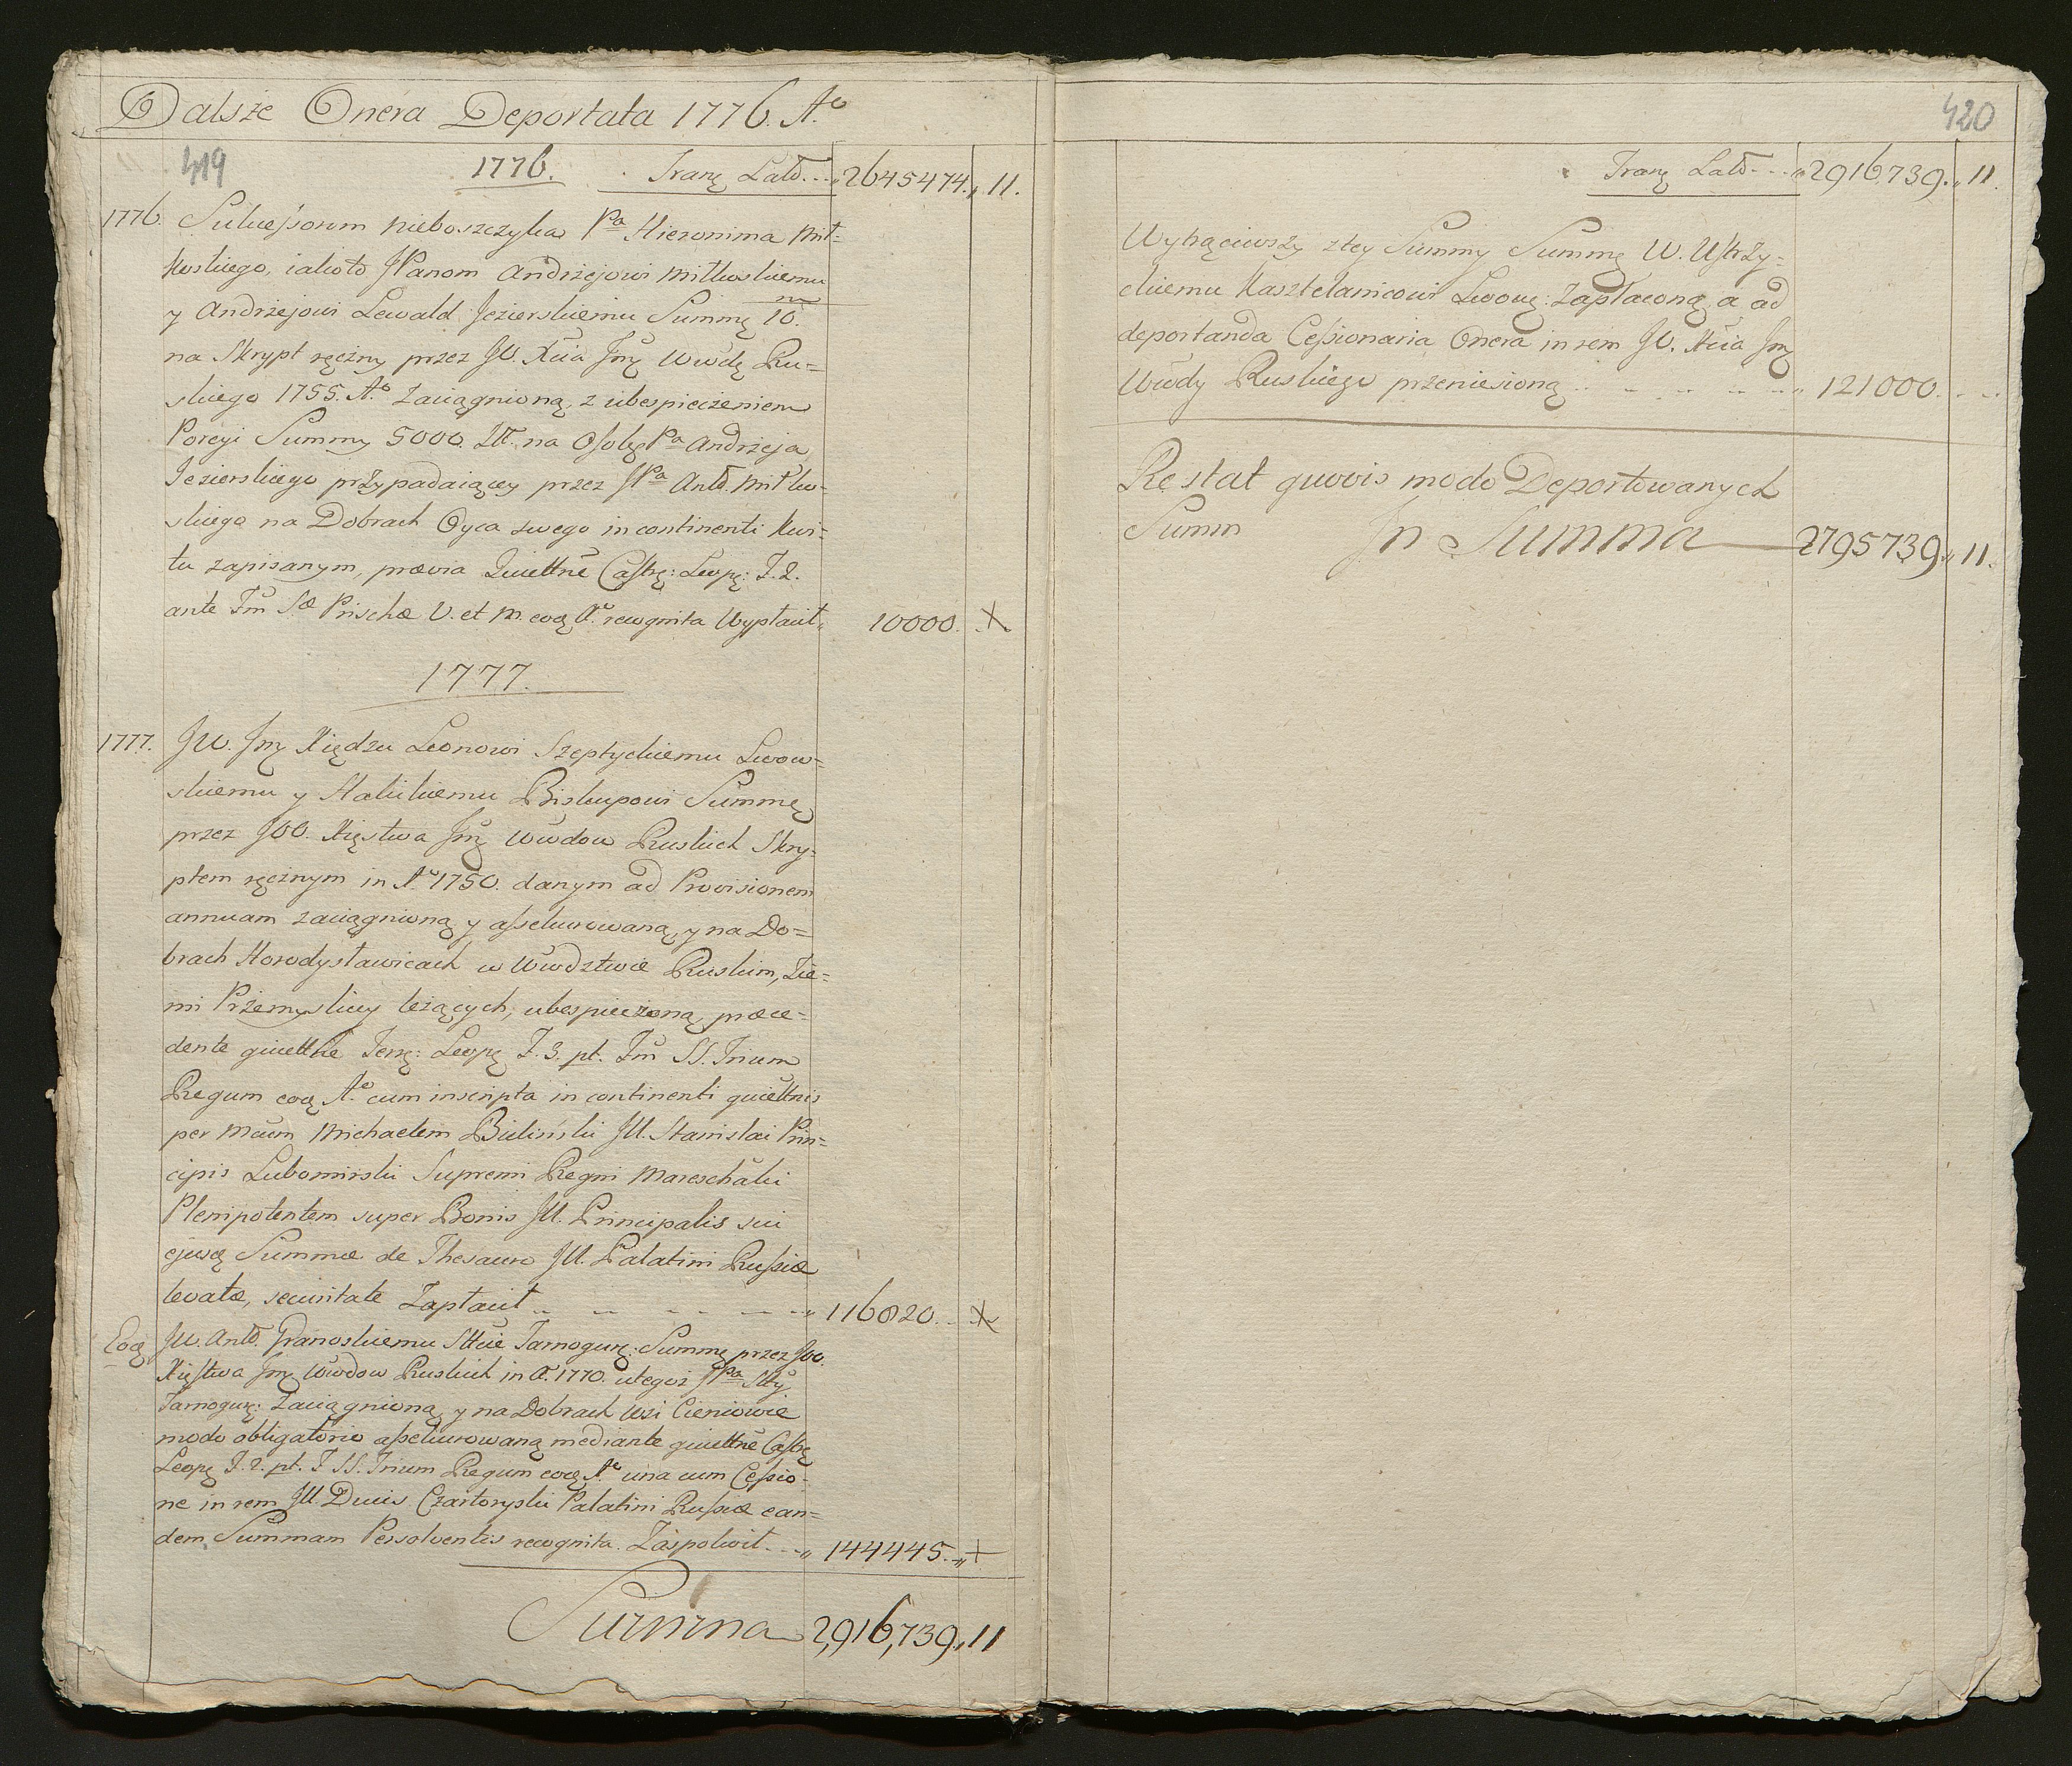 Dalsze Onera Deportata 1776. Aº
419
1776. Tranꝫ Latõ... „2645474.„ 11.
1776. Sukceſsorom nieboszczyka Pª Hieronima Mit=
kowskiego, iakoto JPanom Andrzejowi Mitkowskiemu
y Andrzejowi Lewald Jezierskiemu Summę 10.m
na Skrypt ręczny przez JO. Xcia Jmꝫ Wwdę Ru=
skiego 1755. Aº Zaciągnioną, z ubespieczeniem
Porcyi Summy 5000. na Osobę Pª Andrzeja
Jezierskiego przypadaiącey przez JPª Antõ. Mitko=
skiego na Dobrach Oyca swego in continenti Kwi=
tu zapisanym, prævia Quiettñe Castrꝫ: Leopꝫ: F. 2.
ante Fm̃ Sæ Prischæ V. et M. eoqꝫ Aº recognita Wypłacił„ 10000. X.
1777.
1777. JW. Jmꝫ Xiędzu Leonowi Szeptyckiemu Lwow=
skiemu y Halickiemu Biskupowi Summę
przez JOO. Xięstwa Jmꝫ Wwdow Ruskich Skry=
ptem ręcznym in Aº 1750. danym ad Provisionem
annuam zaciągnioną y aſsekurowaną, y na Do=
brach Horodysławicach w Wwdztwie Ruskim, Zie=
mi Przemyskiey leżących, ubespieczoną, præce=
dente quiettñe Terrꝫ: Leopꝫ F. 3. pt. Fm̃ SS. Trium
Regum eoqꝫ Aº cum inscripta in continenti quiettñis
per Mcum Michaelem Bielinski Jll. Stanislai Prin=
cipis Lubomirski Supremi Regni Mareschalci
Plenipotentem super Bonis Jll. Principalis sui
ejusqꝫ Summæ de Thesauro Jll. Palatini Ruſsiæ
levatæ, securitate Zapłacił.. „ 116820... X
Eoqꝫ JW. Antõ. Granoskiemu Sttcie Tarnogurꝫ: Summę przez JOO.
Xięstwa Jmꝫ Wwdow Ruskich in Aº 1770. u tegoż JPª Stty
Tarnogurꝫ: Zaciągnioną y na Dobrach Wsi Cieniowie
modo obligatorio aſsekurowaną mediante quiettñe Castrꝫ
Leopꝫ F. 2. pt. F SS. Trium Regum eoqꝫ Aº una cum Ceſsio=
ne in rem Jll. Ducis Czartoryski Palatini Ruſsiæ ean=
dem Summam Persolventis recognita. Zaspokoił...„ 144445.„ +
Summa 2,916,739„ 11
420
Tranꝫ Latõ...„ 2916.739.„ 11.
Wytrąciwszy z tey Summy Summę W. Ustrzy=
ckiemu Kasztelanicowi Lwowꝫ: Zapłaconą, a ad
deportanda Ceſsionaria Onera in rem JO. Xcia Jmꝫ
Wwdy Ruskiego przeniesioną.. „ 121000.
Restat quovis modo Deportowanych
Summ In Summa 2795739„ 11.